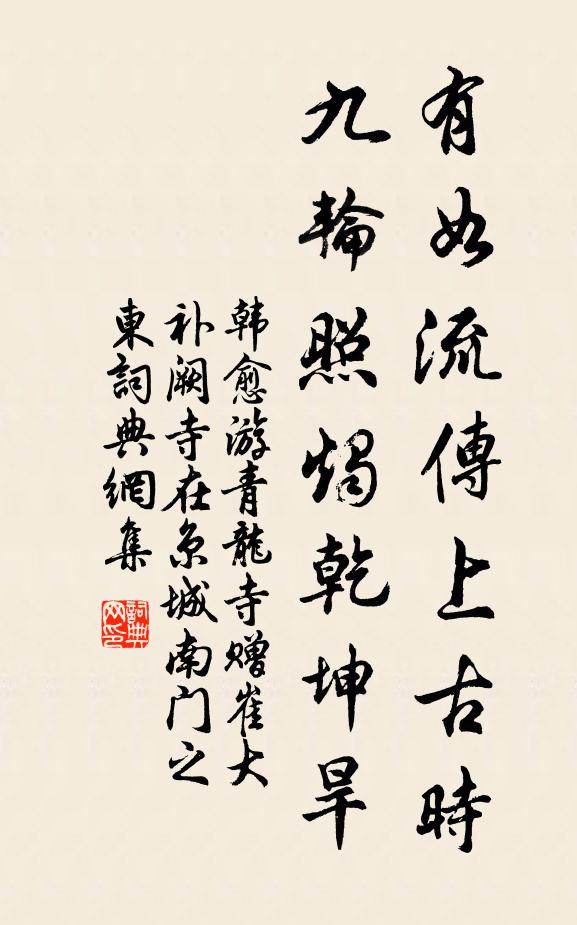 有如流傳上古時
九輪照燭乾坤旱
韩愈游青龍寺赠崔大
补阙寺在京城南门之
東詞典網集
詞典网印